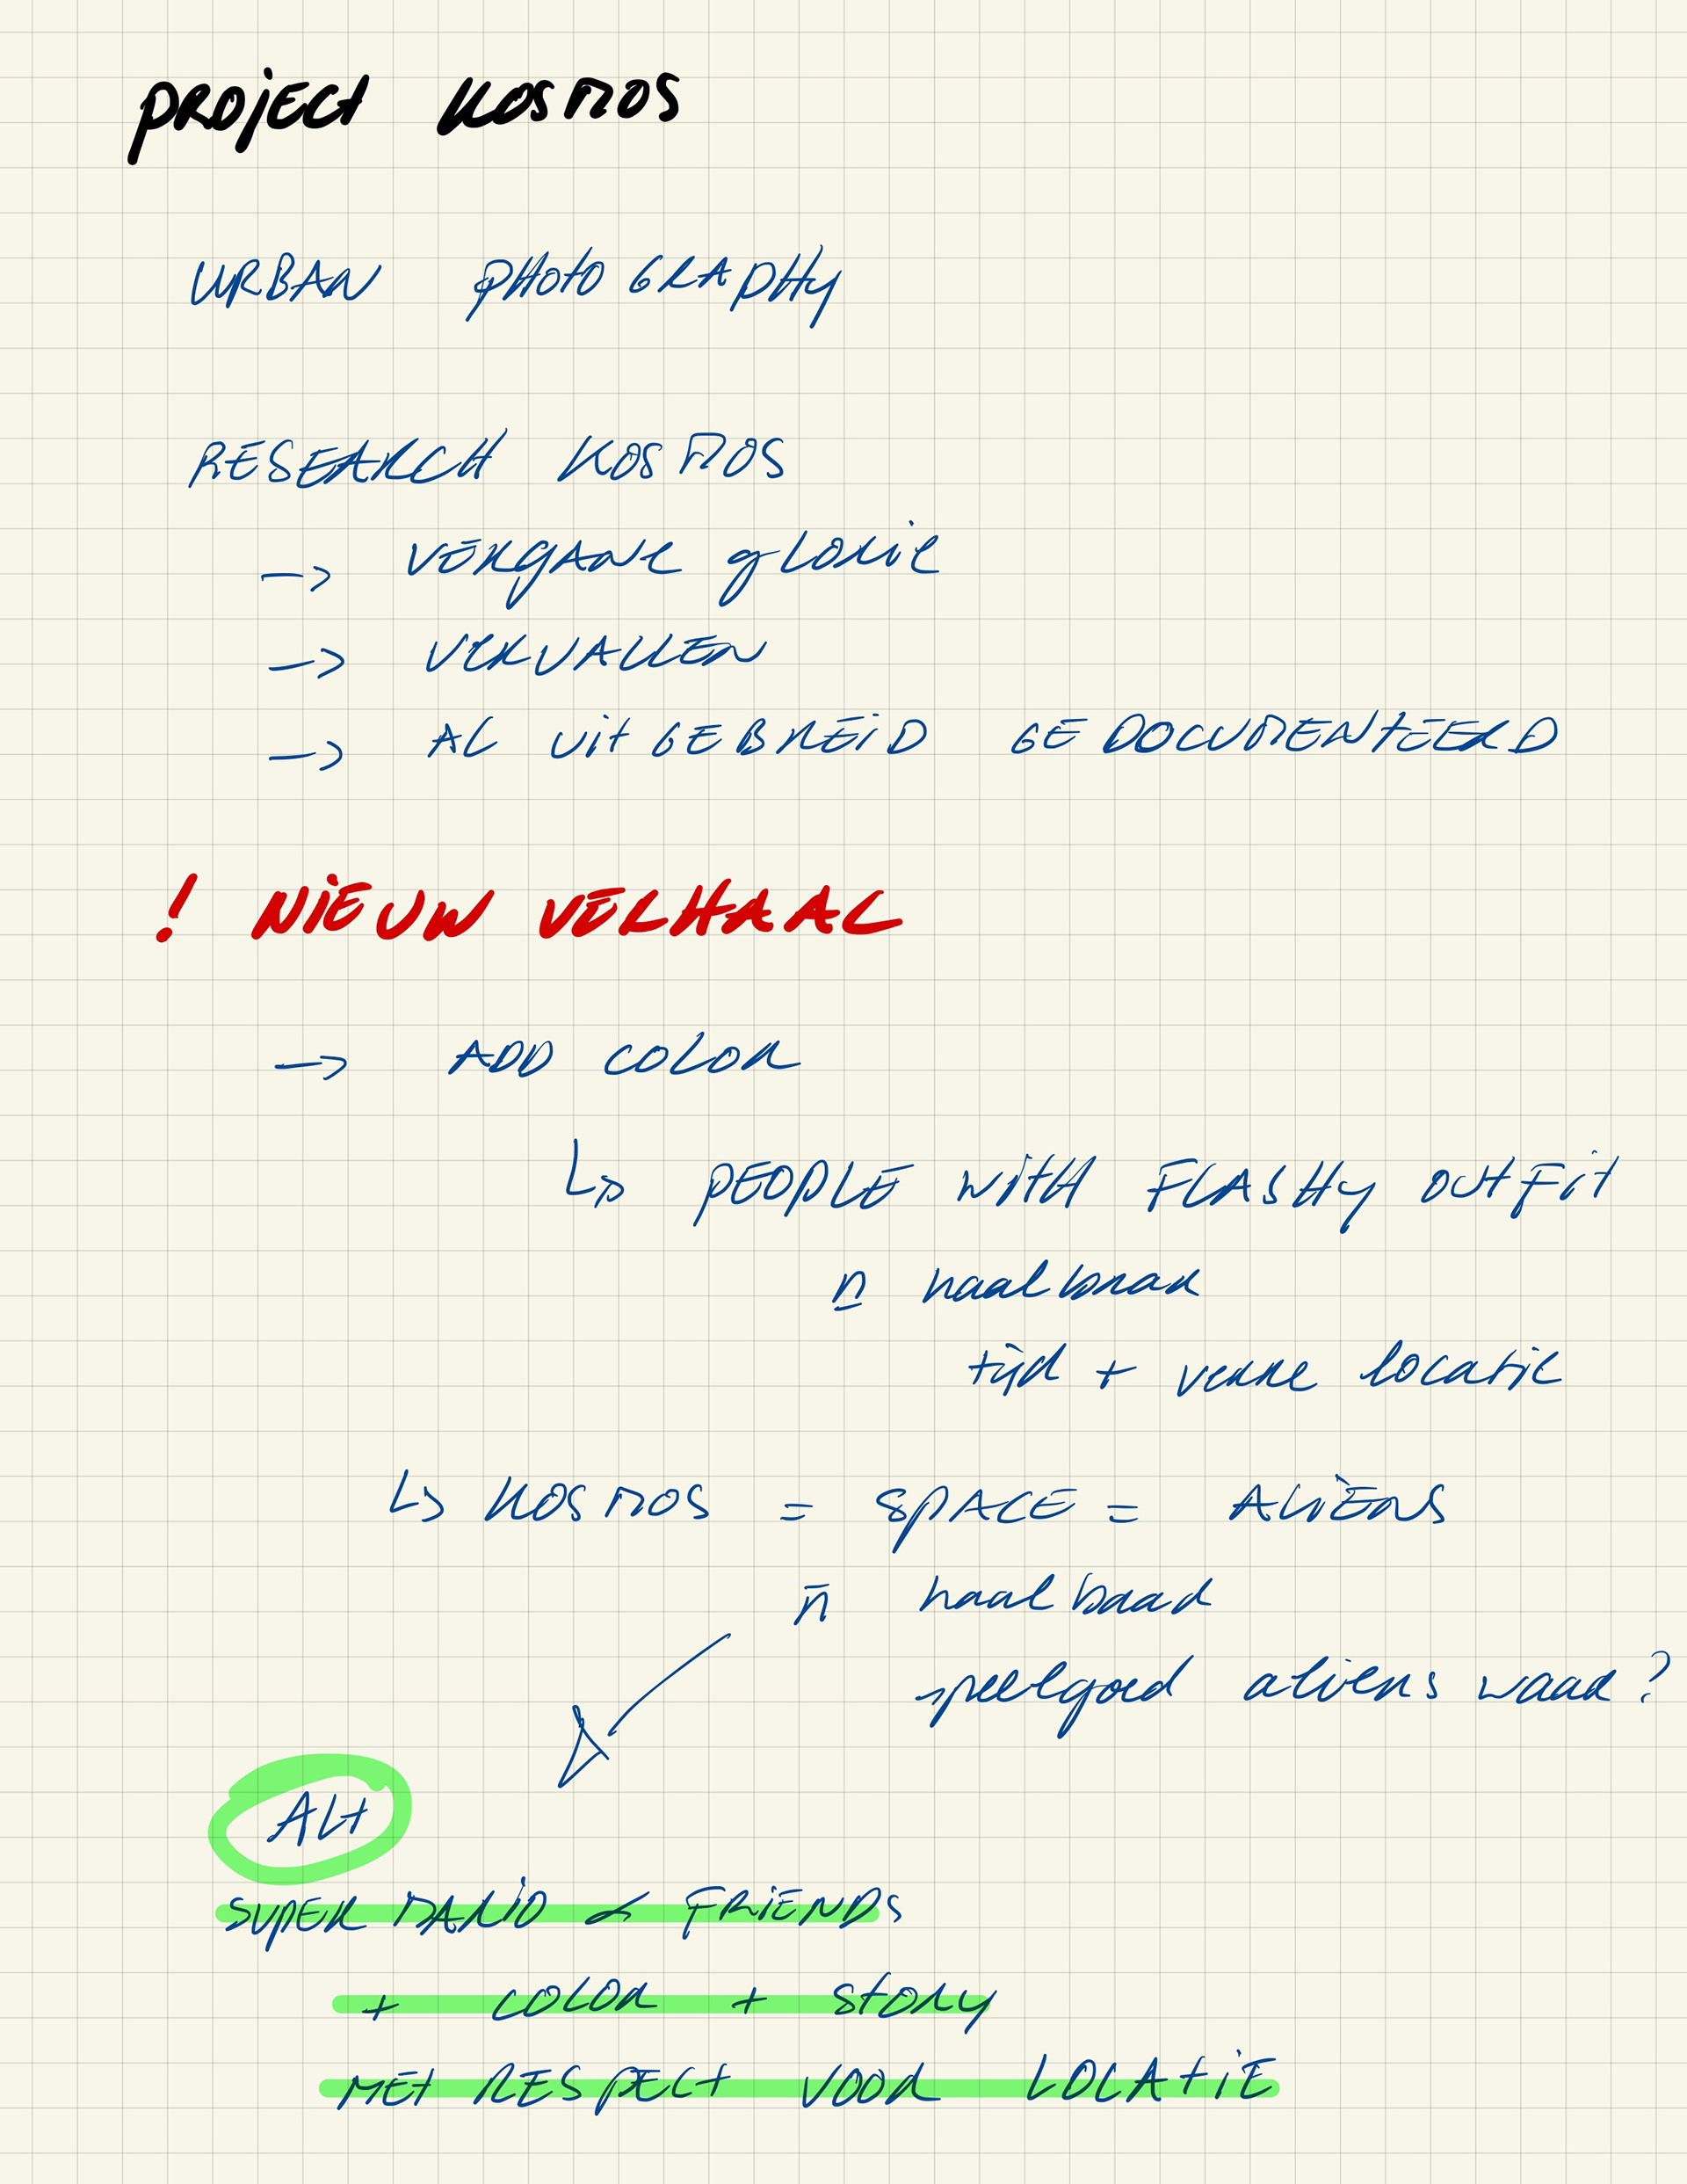 PROJECT KOSMOS
URBAN PHOTOGRAPHY
RESEARCH KOSMOS
-> VERGANE GLORIE
-> VERVALLEN
-> AL UITGEBREID GEDOCUMENTEERD
! NIEUW VERHAAL
-> ADD COLOR
↳ PEOPLE WITH FLASHY OUTFIT
n haalbaar
tijd + verre locatie
↳ KOSMOS = SPACE = ALIENS
n haalbaar
speelgoed aliens waar?
ALT
SUPER MARIO & FRIENDS
+ COLOR + STORY
MET RESPECT VOOR LOCATIE